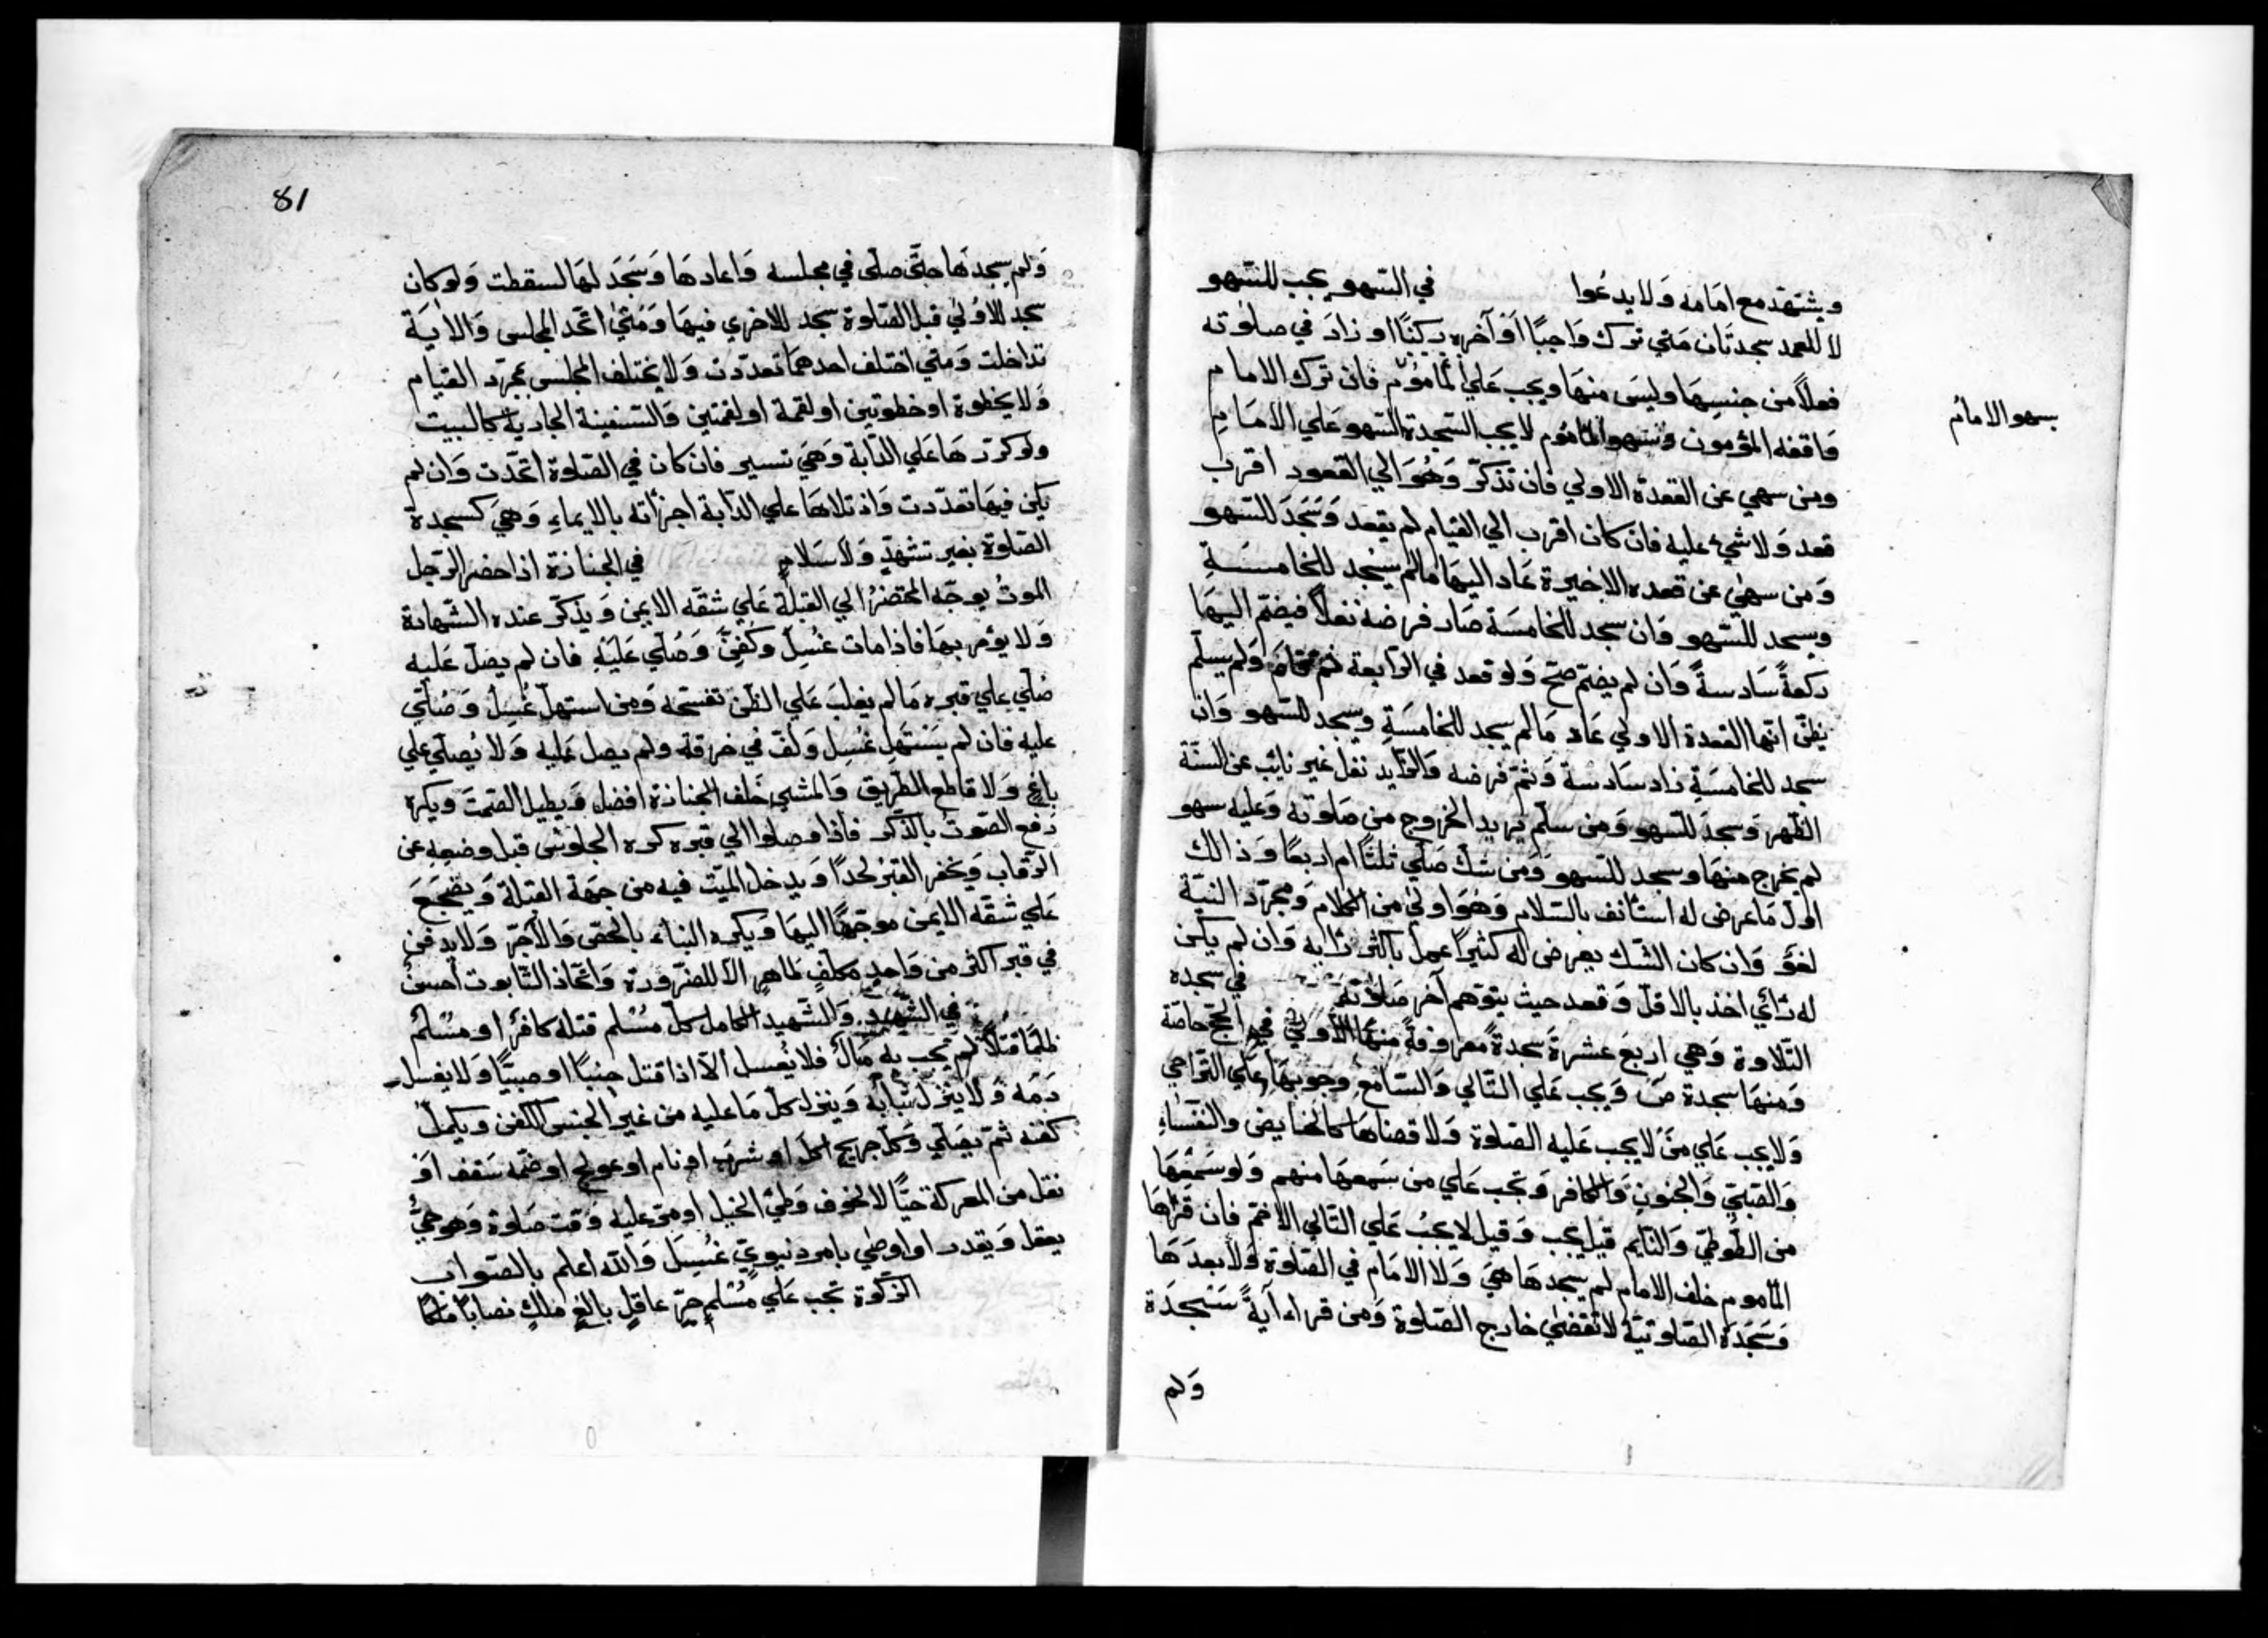 ويشتهد مع امامه ولا يدعوا في السهو يجب للسهو
لا للعمد سجدتان متي ترك واجبًا او آخره ركنًا او زاد في صلوته
فعلاً من جنسها وليس منها ويجب علي المأموم فان ترك الامام
وافقه المؤمون وسهو المأموم لا يجب السجدة السهو علي الامام
سهو الامام
ومن سهي عن القعدة الاولي فان تذكر وهو الي القعود اقرب
قعد ولا شيء عليه فان كان اقرب الي القيام لم يقعد وسجد للسهو
ومن سهي عن قعده الاخيرة عاد اليها مالم يسجد للخامسة
ويسجد للسهو فان سجد للخامسة صار فرضه نفلاً فيضم اليها
ركعةً سادسةً وان لم يضم صح ولو قعد في الرابعة ثم قام ولم يسلم
يظن انها القعدة الاولي عاد مالم يسجد للخامسة ويسجد للسهو وان
سجد للخامسة زاد سادسة وتم فرضه والزايد نفل غير نايب عن السنة
الظهر وسجد للسهو ومن سلم يريد الخروج من صلوته وعليه سهو
لم يخرج منها وسجد للسهو ومن شك صلي ثلثًا ام اربعًا وذالك
اول ما عرض له استأنف بالسلام وهو اولي من الكلام ومجرد النية
لغو وان كان الشك يعرض له كثيرًا عمل باكثر رأيه وان لم يكن
له رأي اخذ بالاقل وقعد حيث يتوهم آخر صلاته في سجده
التلاوة وهي اربع عشرة سجدةً معروفةً منها الأولي في الحج خاصة
ومنها سجدة ص ويجب علي التالي والسامع وجوبها علي التراخي
ولا يجب علي من لا يجب عليه الصلوة ولا قضاها كالحايض والنفساء
والصبي والجنون والكافر وتجب علي من سمعها منهم ولو سمعها
من الطوطي والنايم قيل يجب وقيل لا يجب علي التالي الاصم فان قرأها
المأموم خلف الامام لم يسجدها هي ولا الامام في الصلوة ولا بعدها
وسجدة الصلوتية لا تقضي خارج الصلوة ومن قراء آيةً سجدة
ولم
81
ولم يسجدها حتي صلي في مجلسه واعادها وسجد لها لسقطت ولو كان
سجد للاولي قبل الصلوة سجد للاخري فيها ومتي اتحد المجلس والآية
تداخلت ومتي اختلف احدهما تعددت ولا يختلف المجلس بمجرد القيام
ولا بخطوة او خطوتين او لقمة او لقمتين والسفينة الجارية كالبيت
ولو كررها علي الدابة وهي تسير فان كان في الصلوة اتحدت وان لم
يكن فيها تعددت واذ تلاها علي الدابة اجزأته بالايماء وهي كسجدة
الصلوة بغير تشهد ولا سلام في الجنازة اذا حضر الرجل
الموت يوجه المحتضر الي القبلة علي شقه الايمن ويذكر عنده الشهادة
ولا يؤمر بها فاذا مات غسل وكفن وصلي عليه فان لم يصل عليه
صلي علي قبره مالم يغلب علي الظن تفسخه ومن استهل غسل وصلي
عليه فان لم يستهل غسل ولف في خرقة ولم يصل عليه ولا يصلي علي
باغ ولا قاطع الطريق والمشي خلف الجنازة افضل ويطيل الصمت ويكره
رفع الصوت بالذكر فاذا وصلوا الي قبره كره الجلوس قبل وضعه عن
الرقاب ويحفر القبر لحدًا ويدخل الميت فيه من جهة القبلة ويضجع
علي شقه الايمن موجهًا اليها ويكره البناء بالجص والآجر ولا يدفن
في قبر اكثر من واحد مكلف طاهر الا للضرورة واتخاذ التابوت احسن
في الشهيد والشهيد الكامل كل مسلم قتله كافر او مسلم
ظلمًا قتلاً لم يجب به مال فلا يغسل الا اذا قتل جنبًا او صبيًا ولا يغسل
دمه ولا ينزل ثيابه وينزل كل ما عليه من غير الجنس الكفن ويكمل
كفنه ثم يصلي وكل جريح اكل او شرب او نام او عولج او ضمه سقف او
نقل من المعركة حيًا لا لخوف وطئ الخيل او مر عليه وقت صلوة وهو حي
يعقل ويقدر او اوصي بامر دنيوي غسل والله اعلم بالصواب
الزكوة تجب علي مسلم حر عاقل بالغ مالك نصابًا ملكًا